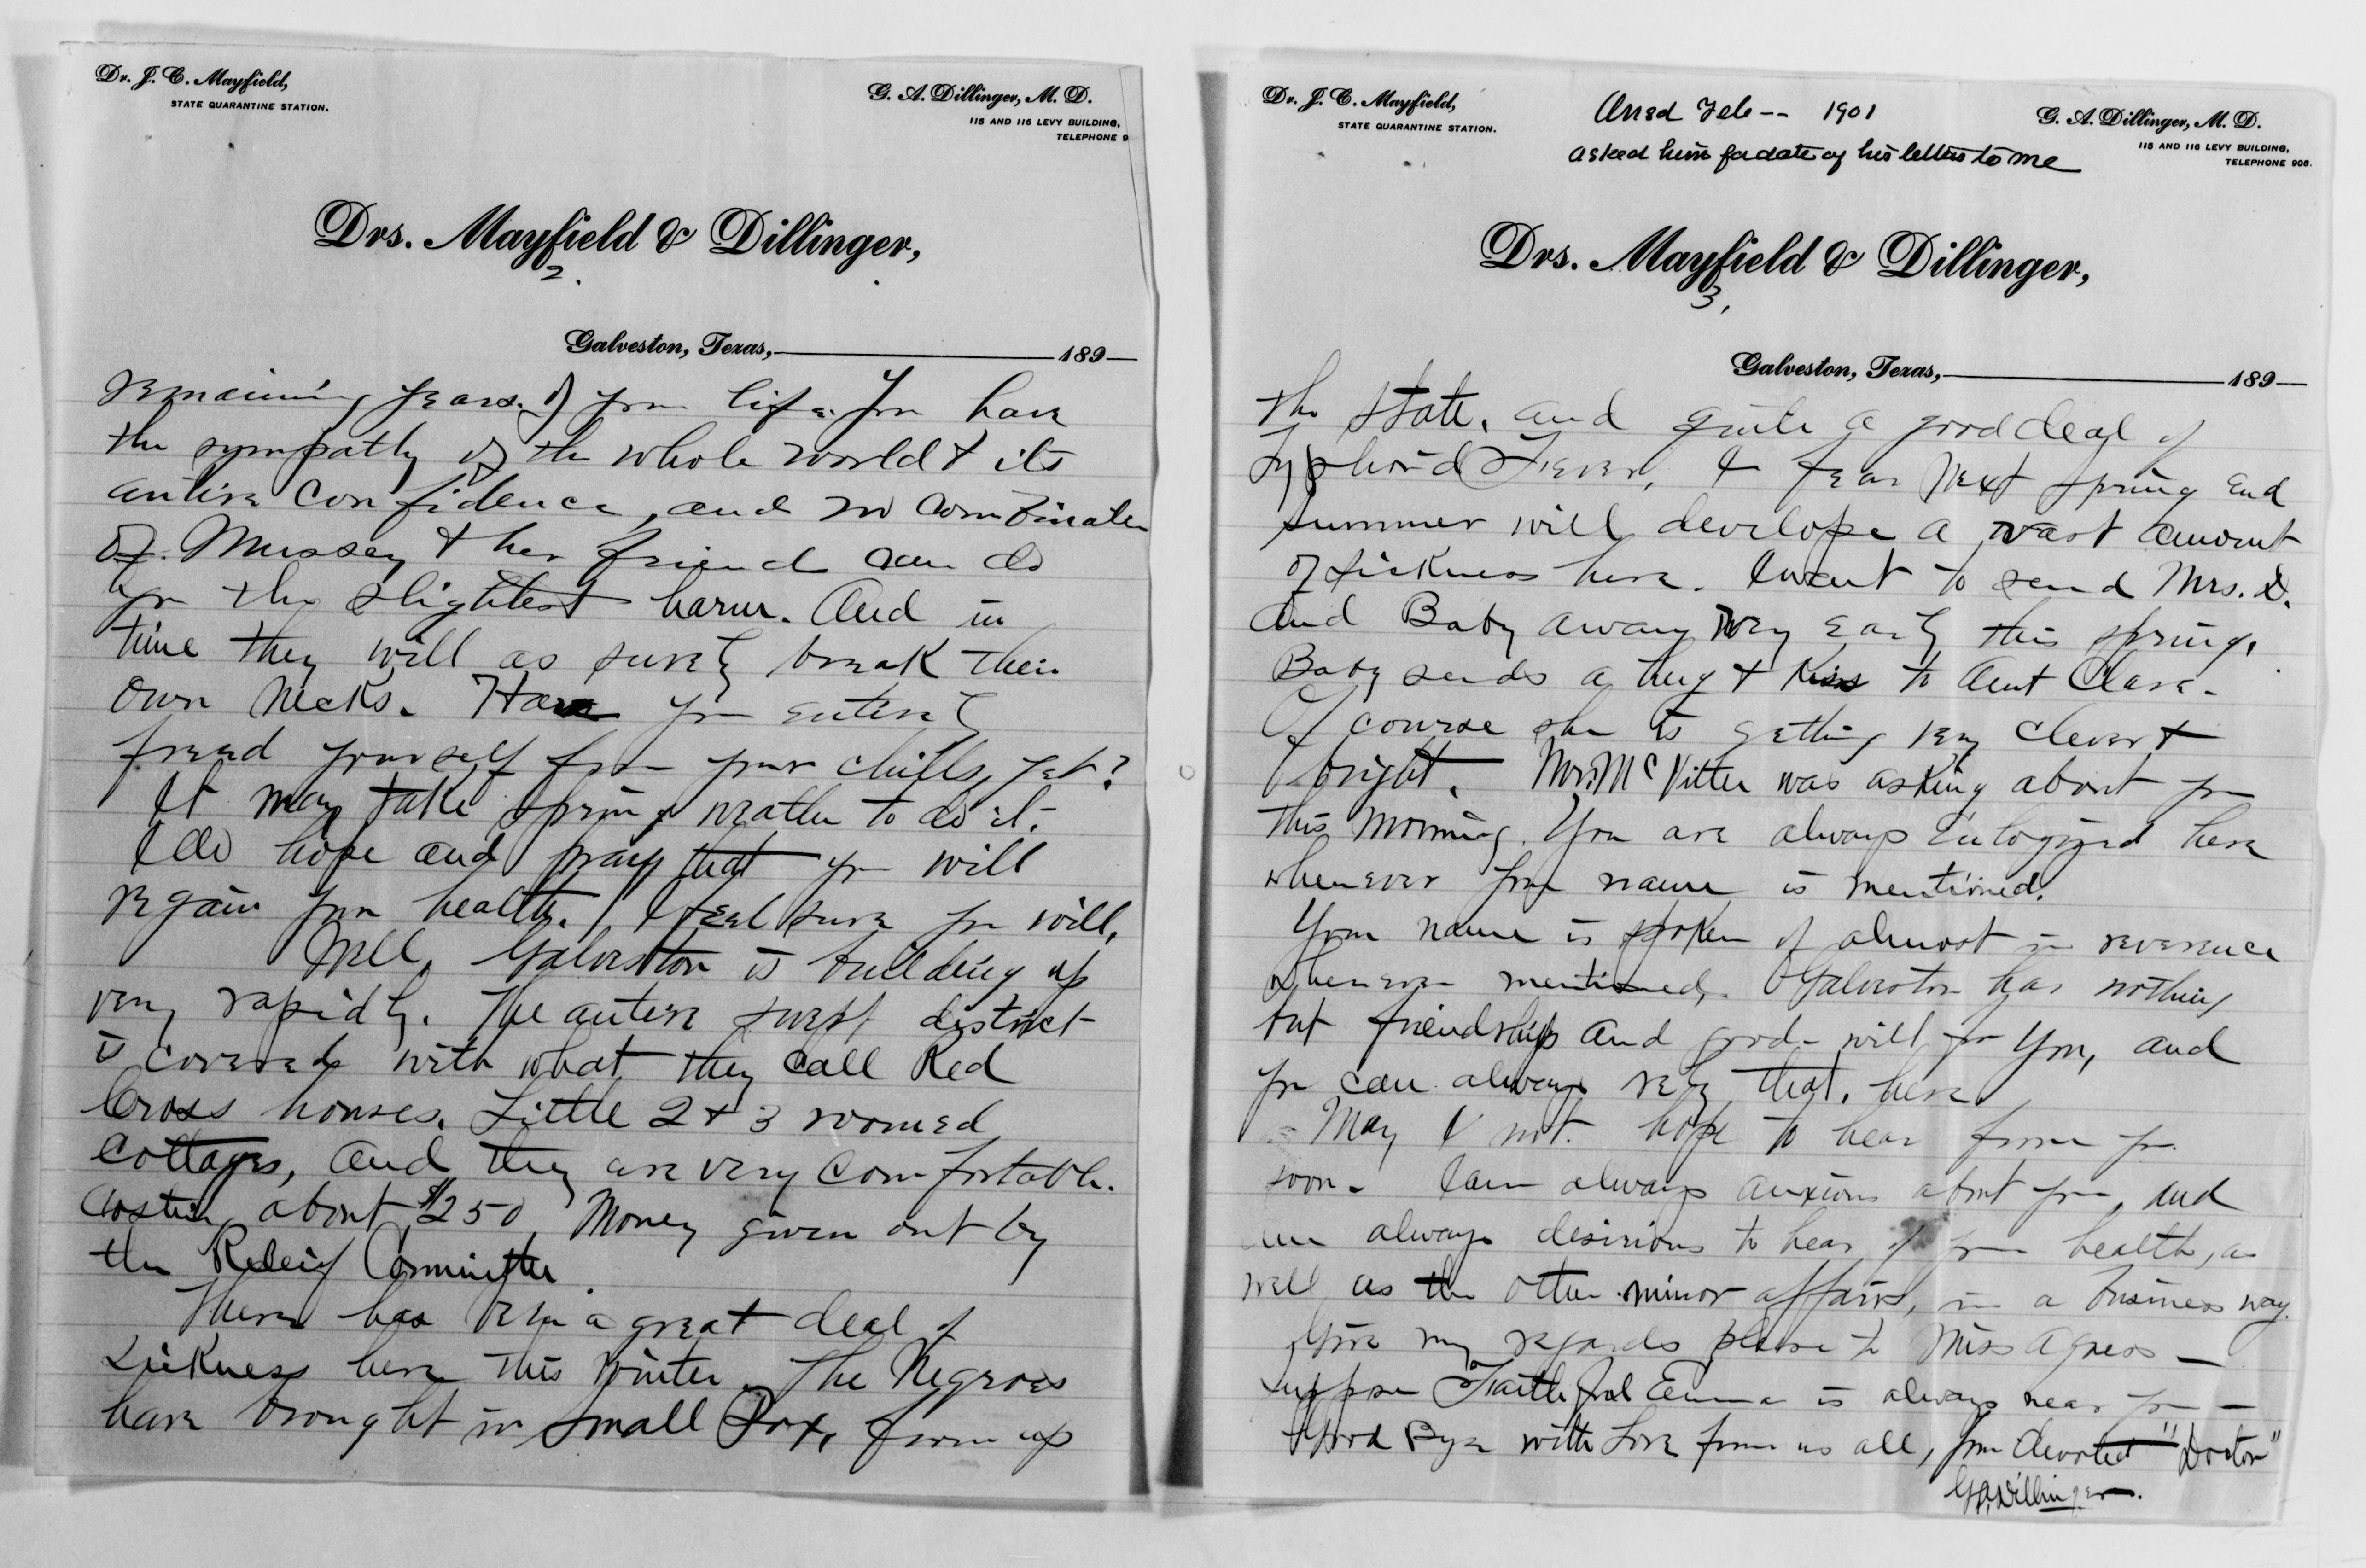 Dr. J. C. Mayfield,
STATE QUARANTINE STATION.
G. A. Dillinger, M. D.
115 AND 116 LEVY BUILDING,
TELEPHONE 9
Drs. Mayfield & Dillinger,
2.
Galveston, Texas, 189
remaining years of your life. You have
the sympathy of the whole world & its
entire confidence, and no combination
of Mussey & her friend can do
you the slightest harm. And in
time they will as surely break their
own necks. Have you entirely
freed yourself from your chills, yet?
It may take spring weather to do it.
I do hope and pray that you will
regain your health. I feel sure you will.
Well, Galveston is building up
very rapidly. The entire swept district
is covered with what they call Red
Cross houses. Little 2 & 3 roomed
cottages, and they are very comfortable.
Costing about $250. Money given out by
the Releif Committee.
There has been a great deal of
sickness here this winter. The Negroes
have brought in Small Pox, from up
Dr. J. C. Mayfield,
STATE QUARANTINE STATION.
Ansd Feb -- 1901
asked him for date of his letters to me
G. A. Dillinger, M. D.
115 AND 116 LEVY BUILDING,
TELEPHONE 908.
Drs. Mayfield & Dillinger,
3,
Galveston, Texas, 189
the State. and quite a good deal of
Typhoid Fever, I fear next spring and
summer will develope a vast amount
of sickness here. I want to send Mrs. D.
and Baby away very early this spring.
Baby sends a hug & kiss to Aunt Clara.
Of course she is getting very clever &
bright. Mr. McVitter was asking about you
this morning. You are always Eulogized here
whenever your name is mentioned.
Your name is spoken of almost in reverence
whenever mentioned. Galveston has nothing
but friendship and good-will for you, and
you can always rely that, here.
May I not hope to hear from you
soon. I am always anxious about you, and
am always desirious to hear of your health, as
well as the other minor affairs, in a business way.
Give my regards please to Miss Agness —
Suppose Faithful Emma is always near you —
Good Bye with Love from us all, your devoted "Doctor"
G.A. Dillinger.